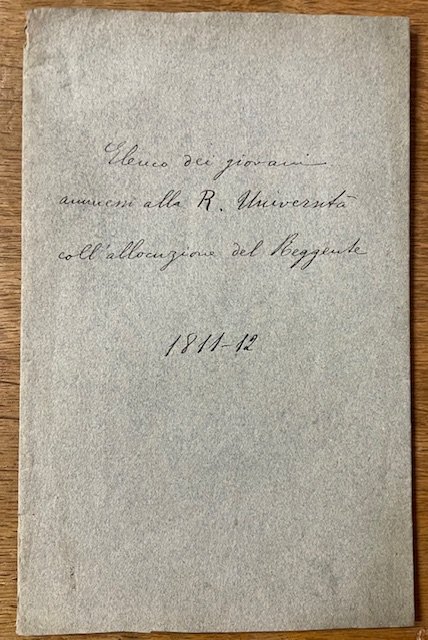 Elenco dei giovani
ammessi alla R. Università
coll'allocuzione del Reggente
1811-12